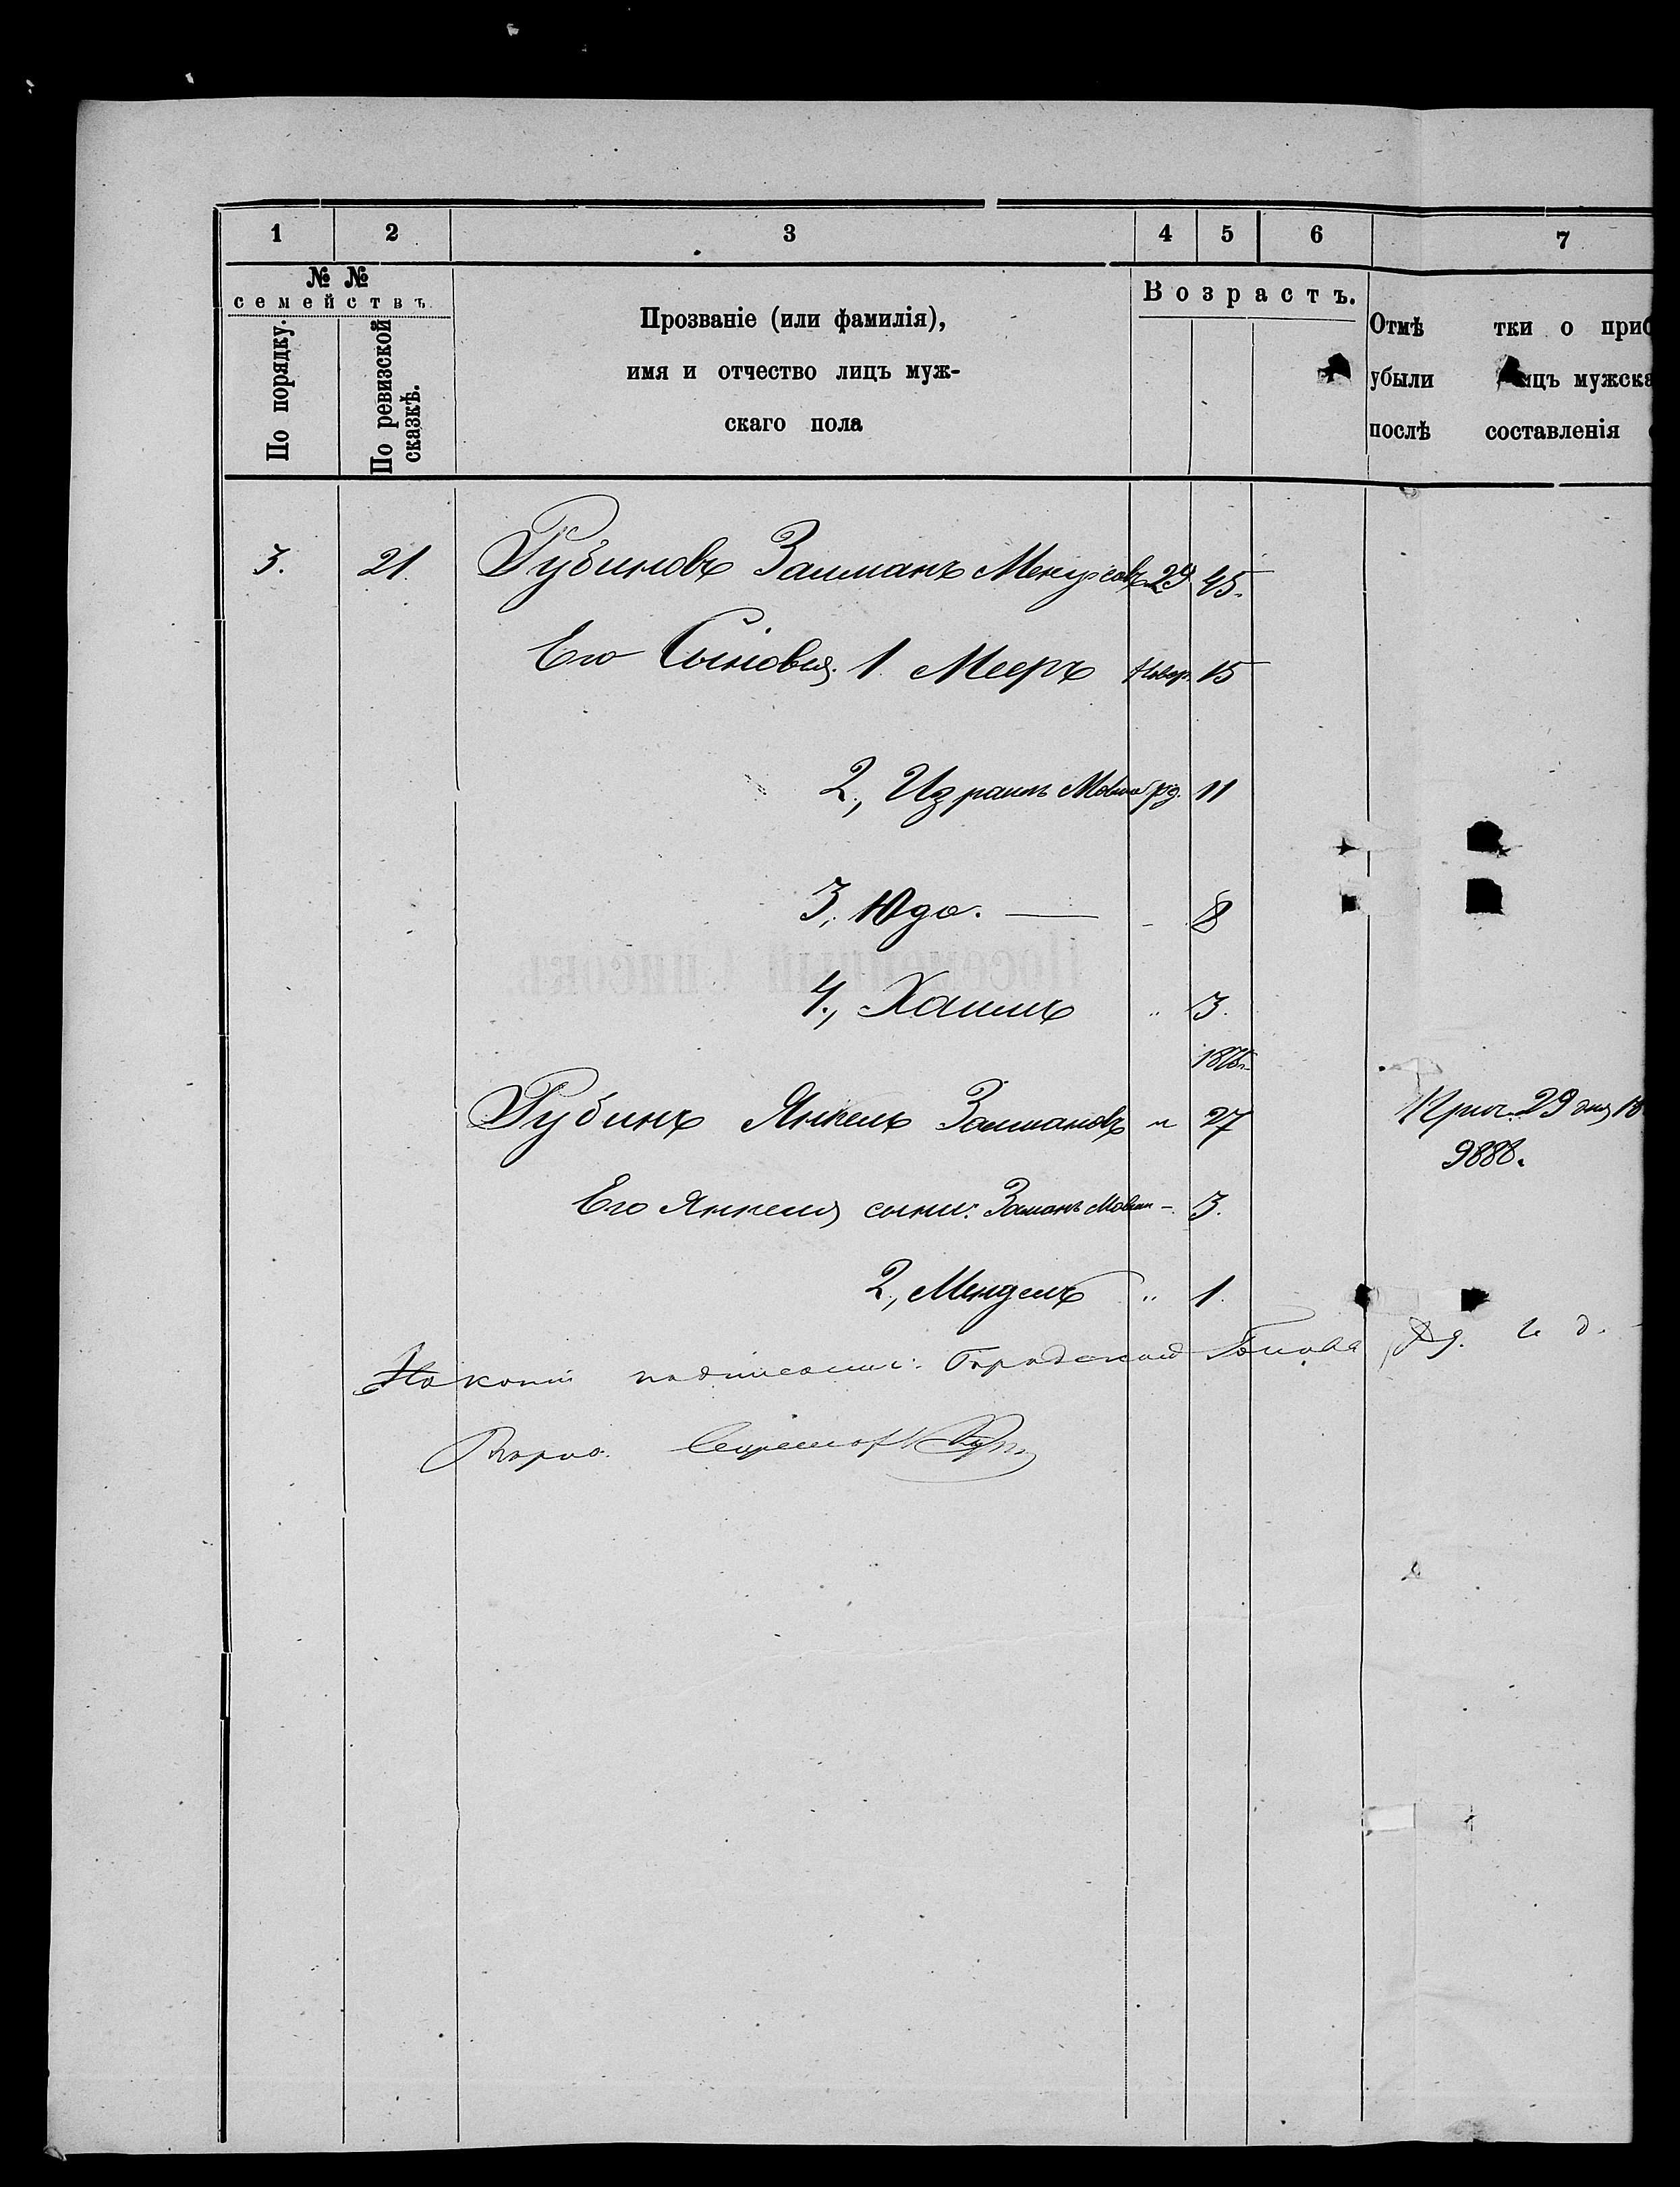 1 2 3 4 5 6 7
№ №
семействъ.
По порядку.
По ревизской сказкѣ.
Прозваніе (или фамилія),
имя и отчество лицъ муж-
скаго пола
Возрастъ.
Отмѣтки о приб
убыли лицъ мужска
послѣ составленія
3. 21. Рубиновъ Залманъ 29 45.
Его Сыновья. 1. Мееръ Новор. 15
2, Израиль Мовша рд. 11
3, Юда. — - 8
4, Хаимъ " 3.
187
Рубинъ Янкель Залмановъ " 27 29 дня 18
9888.
Его Янкеля сыни: Залманъ Мовша - 3.
2, Мендель " 1.
На копіи подписали: Городской Голова
Вѣрно: Секретарь